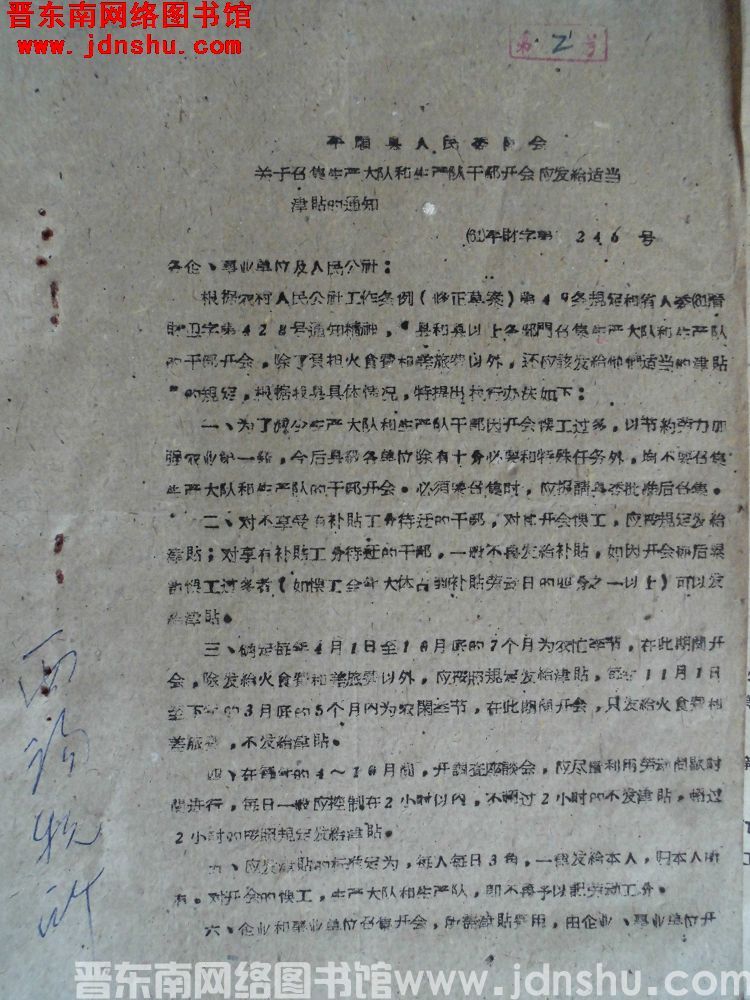 晋东南网络图书馆
www. jdnshu.com
第 2 号
平順县人民委員会
关于召集生产大队和生产队干部开会应发給适当
津貼的通知
(61)平財字第 246 号
各企、事业单位及人民公社：
根据农村人民公社工作条例（修正草案）第49条規定和省人委(61)晋
財卫字第428号通知精神，“县和县以上各部門召集生产大队和生产队
的干部开会，除了負担火食費和差旅費以外，还应該发給他們适当的津貼
”的規定，根据我县具体情况，特提出执行办法如下：
一、为了减少生产大队和生产队干部因开会悞工过多，以节約劳力加
强农业第一綫，今后县級各单位除有十分必要和特殊任务外，均不要召集
生产大队和生产队的干部开会。必須要召集时，应报請县委批准后召集。
二、对不享受有补貼工分待迂的干部，对其开会悞工，应按規定发給
津貼；对享有补貼工分待迂的干部，一般不再发給补貼，如因开会
的悞工过多者（如悞工全年大体占到补貼劳动日的四分之一以上）可以发
給津貼。
三、确定每年4月1日至10月底的7个月为农忙季节，在此期間开
会，除发給火食費和差旅費以外，应按照規定发給津貼，每年11月1日
至下年的3月底的5个月內为农閑季节，在此期間开会，只发給火食費和
差旅費，不发給津貼。
四、在每年的4～10月間，开調查座談会，应尽量利用劳动間歇时
間进行，每日一般应控制在2小时以內，不超过2小时的不发津貼，超过
2小时的按照規定发給津貼。
五、应发津貼的标准定为，每人每日3角，一律发給本人，归本人所
有。对开会的悞工，生产大队和生产队，即不再予以記劳动工分。
六、企业和事业单位召集开会，所需津貼費用，由企业、事业单位开
晋东南网络图书馆www.jdnshu.com